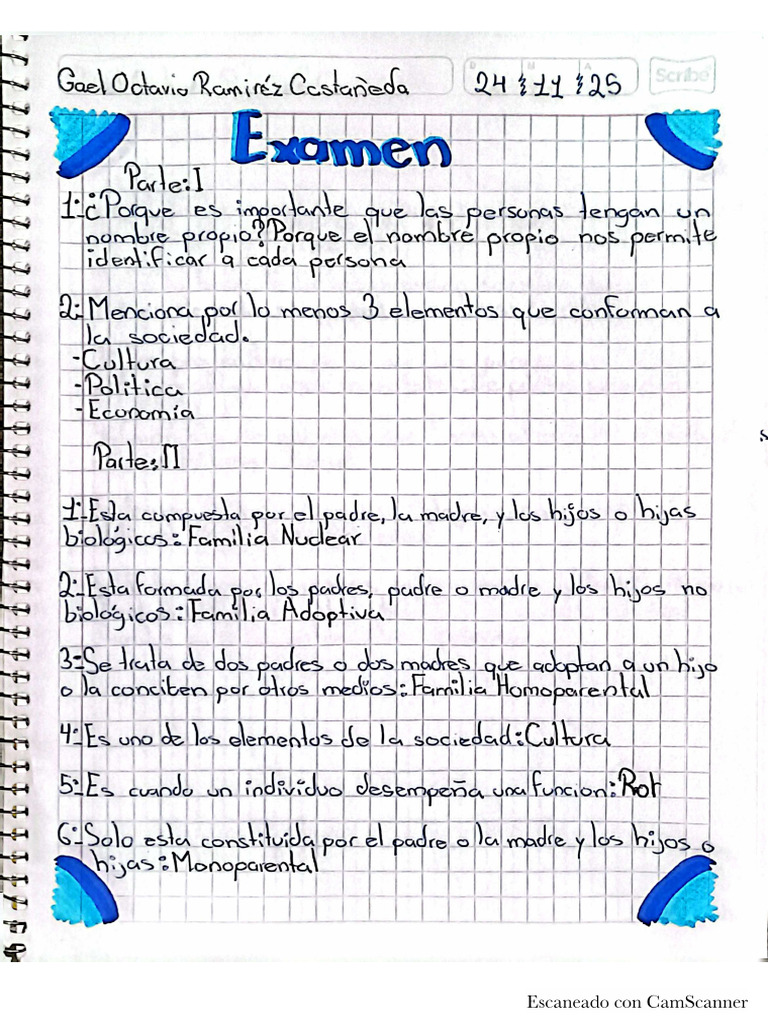 Gael Octavio Ramiréz Castañeda
D M A
24 11 25
Scribe
Examen
Parte: I
1: ¿Porque es importante que las personas tengan un
nombre propio? Porque el nombre propio nos permite
identificar a cada persona
2: Menciona por lo menos 3 elementos que conforman a
la sociedad.
- Cultura
- Politica
- Economía
Parte: II
1: Esta compuesta por el padre, la madre, y los hijos o hijas
biológicos: Familia Nuclear
2: Esta formada por los padres, padre o madre y los hijos no
biológicos: Familia Adoptiva
3: Se trata de dos padres o dos madres que adoptan a un hijo
o la conciben por otros medios: Familia Homoparental
4: Es uno de los elementos de la sociedad: Cultura
5: Es cuando un individuo desempeña una funcion: Rol
6: Solo esta constituida por el padre o la madre y los hijos o
hijas: Monoparental
Escaneado con CamScanner